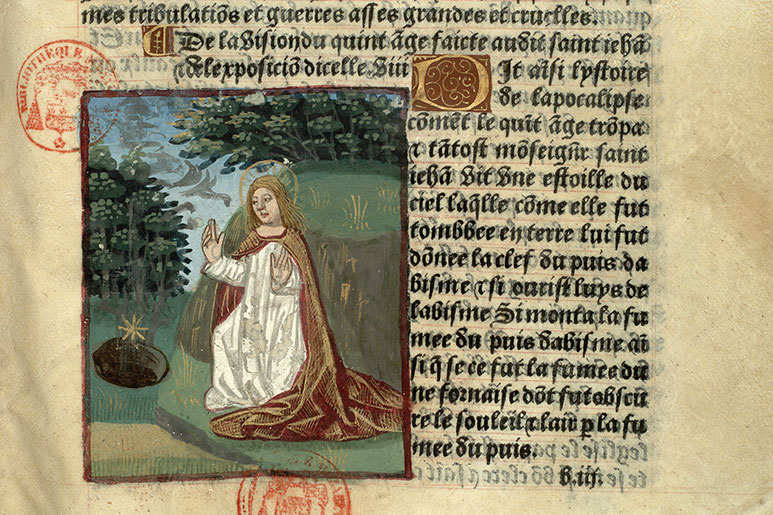 mes tribulatiõs et guerres asses grandes et cruelles.
De la vision du quint ãge faicte audit saint iehã
⁊ de lexposiciõ dicelle. viii
Dit aĩsi lystoire
de lapocalipse
cõmẽt le quĩt ãge trõpa
⁊ tãtost mõseignr̃ saint
iehã vit vne estoille du
ciel laq̃lle cõme elle fut
tombbee en terre lui fut
dõnee la clef du puis da
bisme ⁊ si ourist luys de
labisme Si monta la fu
mee du puis dabisme aĩ
si q̃ se ce fut la fumee du
ne fornaise dõt fut obscu
re le souleil ⁊ lair p la fu
mee du puis.
b.iii.